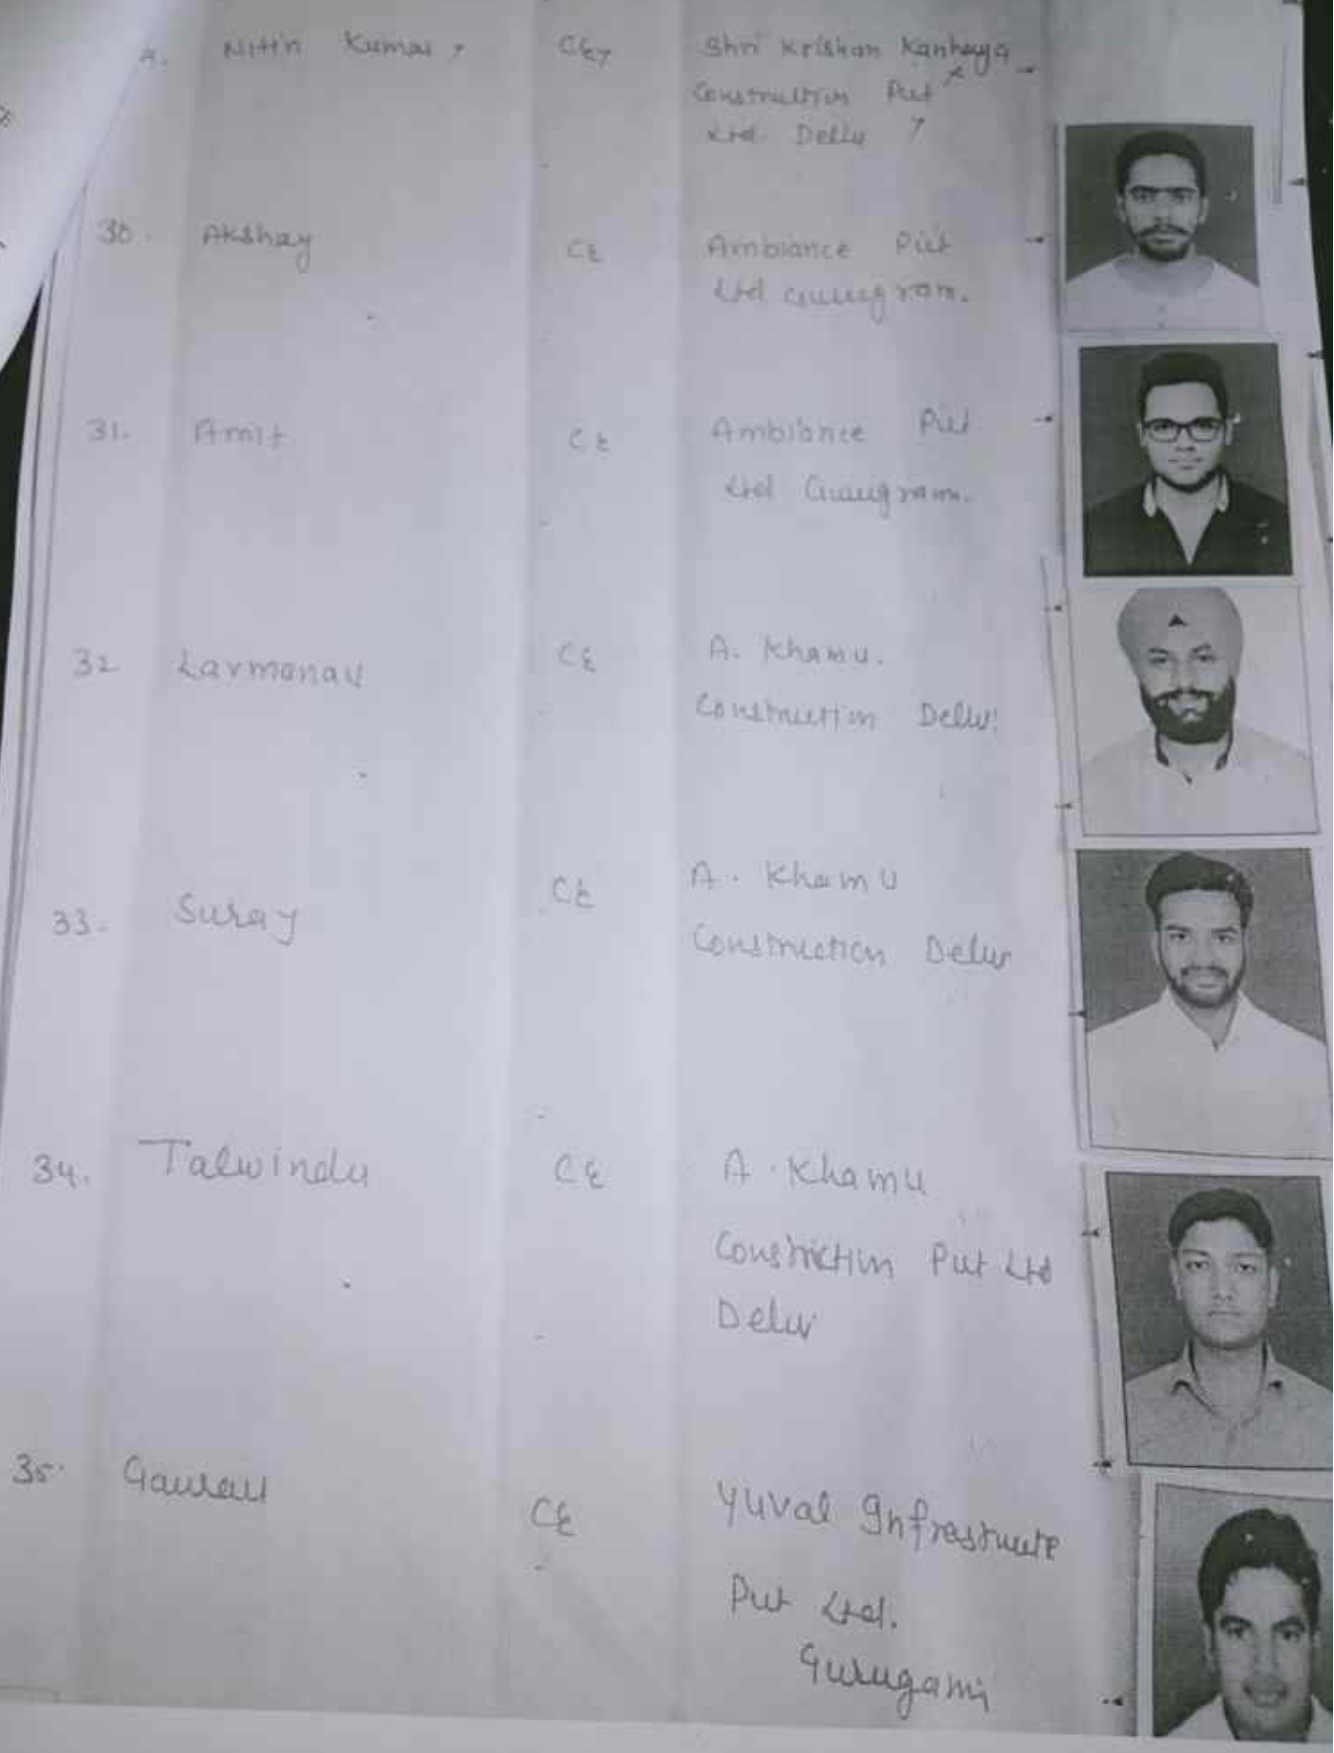 Nittin Kumar, CE, Shri Krishan Kanhaya
Construction Pvt
Ltd. Delhi
30. Akshay CE Ambiance Pvt
Ltd Gurugram.
31. Amit CE Ambiance Pvt
Ltd Gurugram.
32 Lavmanav CE A. Khamu.
Construction Delhi.
33. Suray CE A. Khamu
Construction Delhi
34. Talwinder CE A. Khamu
Construction Pvt Ltd
Delhi
35. Gaurav CE Yuval Infrastructure
Pvt Ltd.
Gurugami